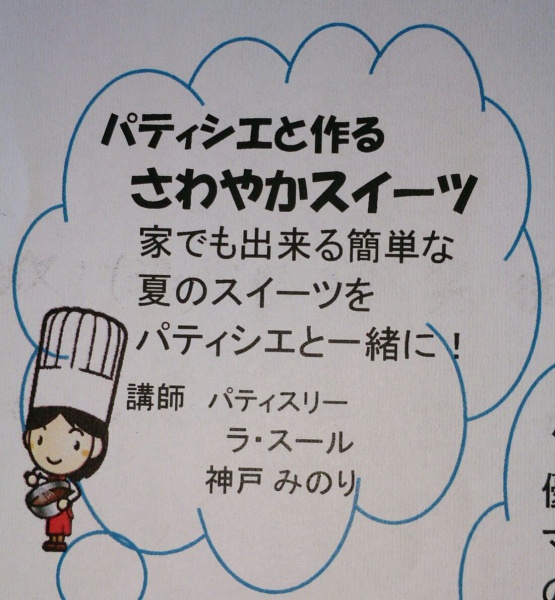 パティシエと作る
さわやかスイーツ
家でも出来る簡単な
夏のスイーツを
パティシエと一緒に！
講師 パティスリー
ラ・スール
神戸 みのり